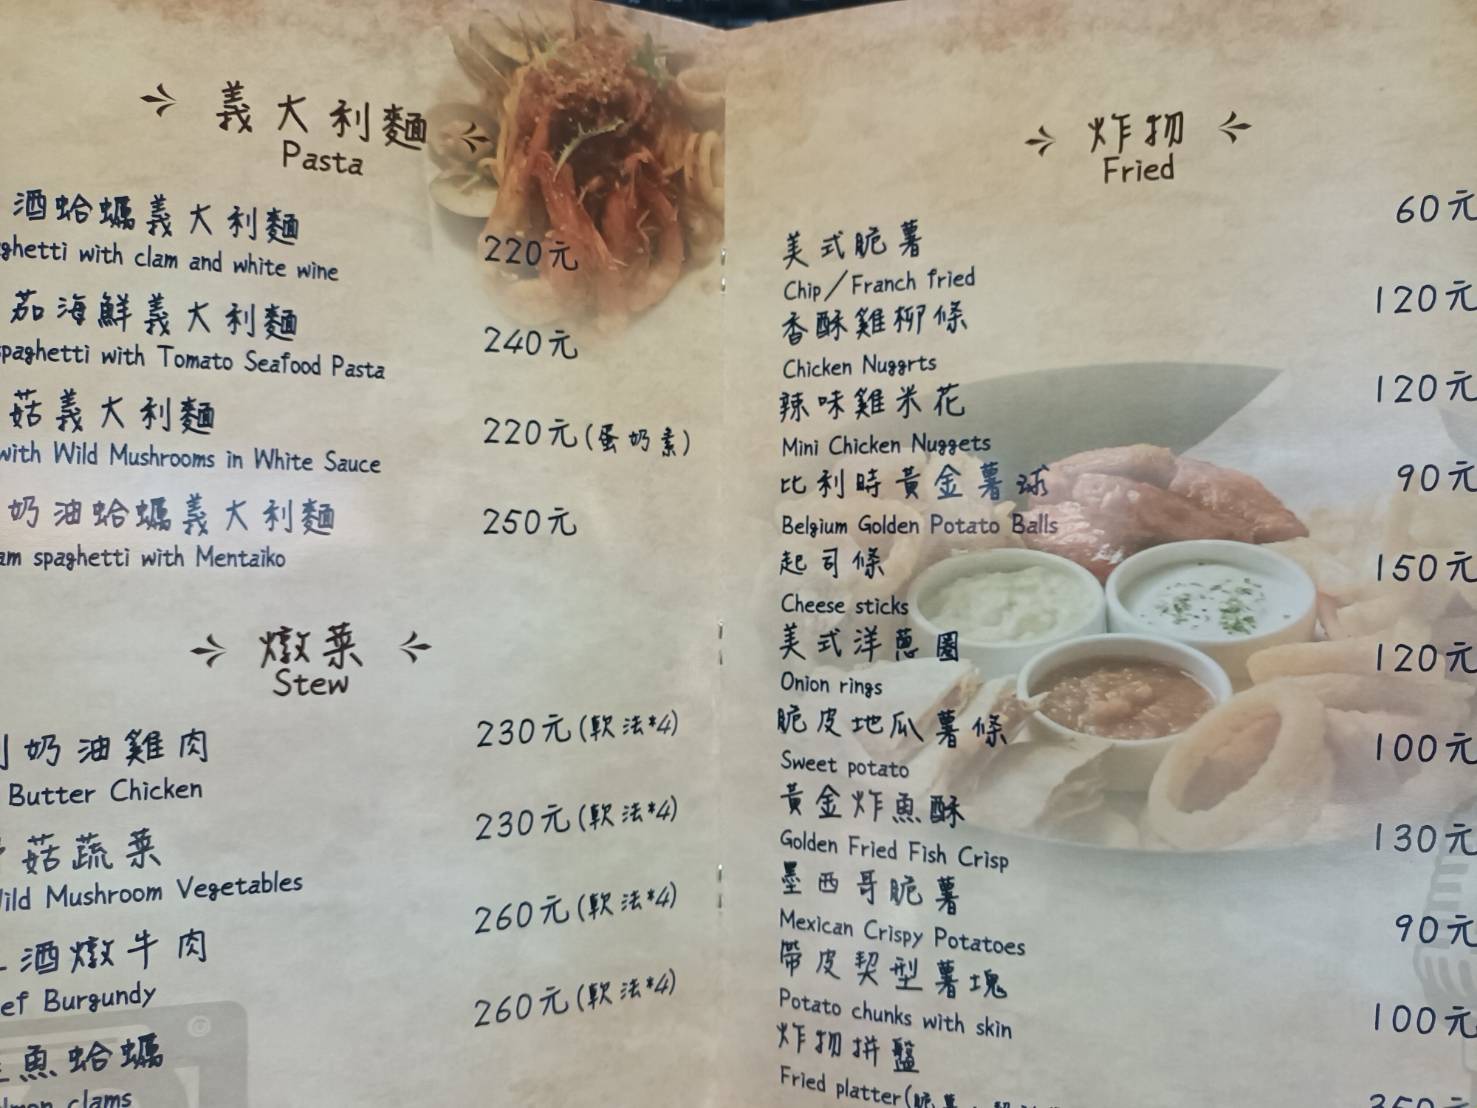 義大利麵
Pasta
酒蛤蠣義大利麵
ghetti with clam and white wine
220元
茄海鮮義大利麵
spaghetti with Tomato Seafood Pasta
240元
菇義大利麵
with Wild Mushrooms in White Sauce
220元(蛋奶素)
奶油蛤蠣義大利麵
am spaghetti with Mentaiko
250元
燉菜
Stew
奶油雞肉
Butter Chicken
230元(軟法*4)
菇蔬菜
Wild Mushroom Vegetables
230元(軟法*4)
酒燉牛肉
ef Burgundy
260元(軟法*4)
魚蛤蠣
lmon clams
260元(軟法*4)
炸物
Fried
美式脆薯
60元
Chip/Franch fried
香酥雞柳條
120元
Chicken Nuggrts
辣味雞米花
120元
Mini Chicken Nuggets
比利時黃金薯球
90元
Belgium Golden Potato Balls
起司條
150元
Cheese sticks
美式洋蔥圈
120元
Onion rings
脆皮地瓜薯條
100元
Sweet potato
黃金炸魚酥
130元
Golden Fried Fish Crisp
墨西哥脆薯
90元
Mexican Crispy Potatoes
帶皮契型薯塊
100元
Potato chunks with skin
炸物拼盤
350元
Fried platter(脆薯